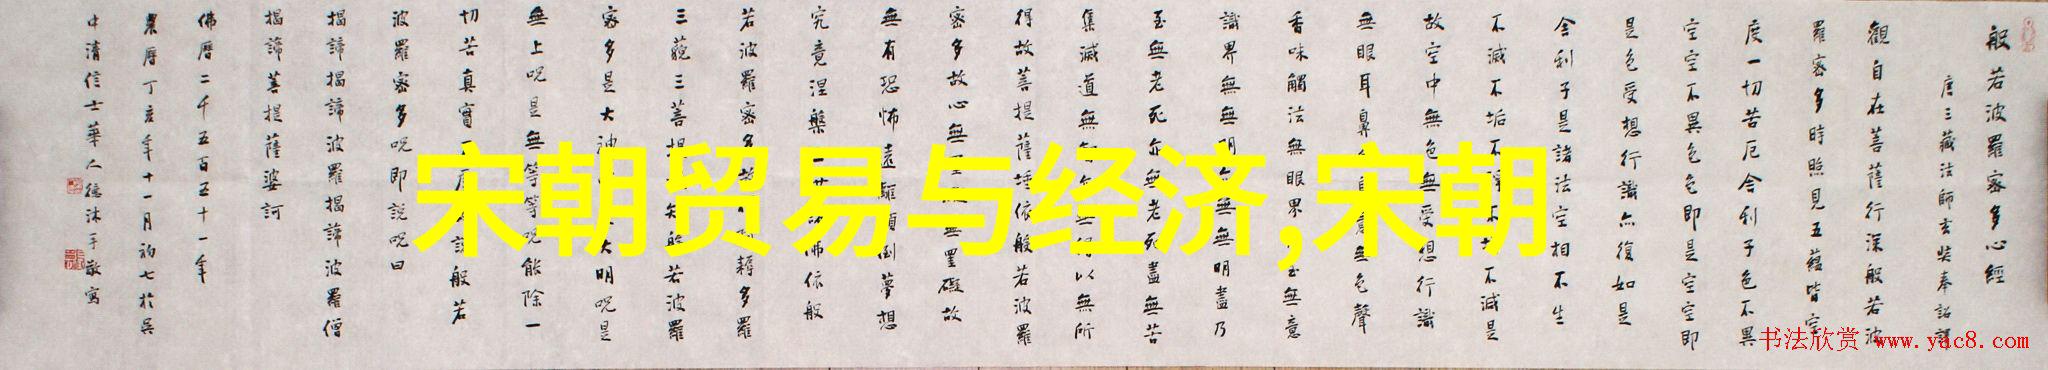 般若波羅密多心經
唐三藏法師玄奘奉詔譯
觀自在菩薩行深般若波
羅密多時照見五蘊皆空
度一切苦厄舍利子色不異
空空不異色色即是空空即
是色受想行識亦復如是
舍利子是諸法空相不生
不滅不垢不淨不不減是
故空中無色無受想行識
無眼耳鼻意無色聲
香味觸法無眼界至無意
識界無無明無無明盡乃
至無老死亦無老死盡無苦
集滅道無亦無得以無所
得故菩提薩埵依般若波羅
密多故心無無罣礙故
無有恐怖遠離顛倒夢想
究竟涅槃三世諸佛依般
若波羅密多故耨多羅
三藐三菩提知般若波羅
密多是大神大明咒是
無上咒是無等等咒能除一
切苦真實不虛說般若
波羅密多咒即說咒曰
揭諦揭諦波羅揭諦波羅僧
揭諦菩提薩婆訶
佛曆二千五百五十一年
農曆丁亥年十一月初七於吳
中清信士華人德沐手敬寫
宋朝贸易与经济,宋朝
书法欣赏 www.yac8.com